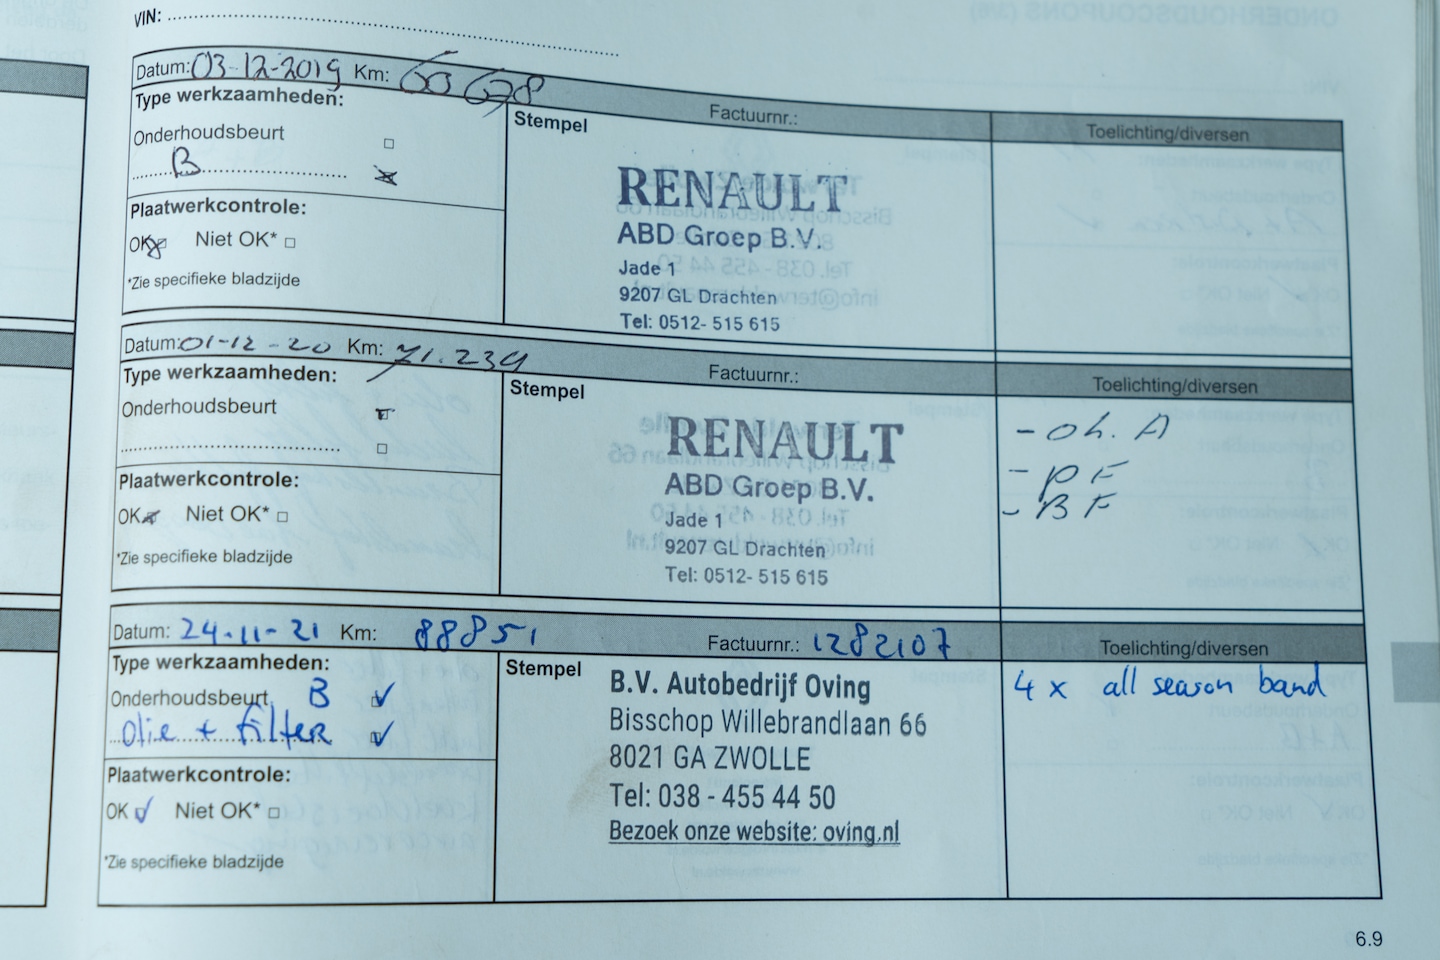 VIN:
Datum: 03-12-2019 Km: 60 678 Factuurnr.: Toelichting/diversen
Type werkzaamheden:
Onderhoudsbeurt
B
Plaatwerkcontrole:
OK Niet OK*
*Zie specifieke bladzijde
Stempel
RENAULT
ABD Groep B.V.
Jade 1
9207 GL Drachten
Tel: 0512- 515 615
Datum: 01-12-20 Km: 71.239 Factuurnr.: Toelichting/diversen
Type werkzaamheden:
Onderhoudsbeurt
Plaatwerkcontrole:
OK Niet OK*
*Zie specifieke bladzijde
Stempel
RENAULT
ABD Groep B.V.
Jade 1
9207 GL Drachten
Tel: 0512- 515 615
- oh. A
- PF
- BF
Datum: 24-11-21 Km: 88851 Factuurnr.: 1282107 Toelichting/diversen
Type werkzaamheden:
Onderhoudsbeurt B
Olie + filter
Plaatwerkcontrole:
OK Niet OK*
*Zie specifieke bladzijde
Stempel
B.V. Autobedrijf Oving
Bisschop Willebrandlaan 66
8021 GA ZWOLLE
Tel: 038 - 455 44 50
Bezoek onze website: oving.nl
4 x all season band
6.9